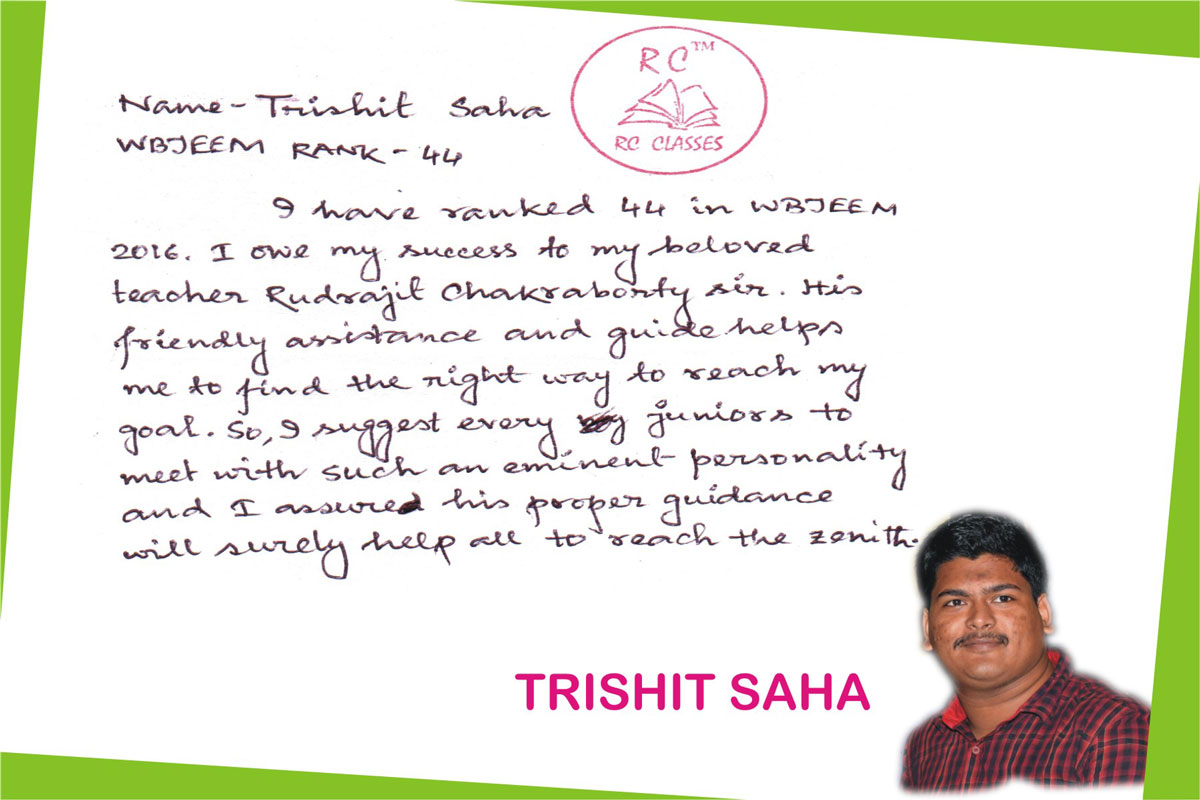 RC™
RC CLASSES
Name - Trishit Saha
WBJEEM RANK - 44
I have ranked 44 in WBJEEM
2016. I owe my success to my beloved
teacher Rudrajit Chakraborty sir. His
friendly assistance and guide helps
me to find the right way to reach my
goal. So, I suggest every juniors to
meet with such an eminent personality
and I assured his proper guidance
will surely help all to reach the zenith.
TRISHIT SAHA